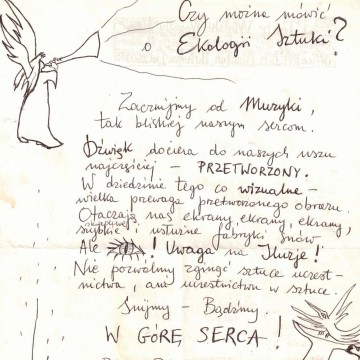 Czy można mówić
o Ekologii Sztuki?
Zacznijmy od Muzyki,
tak bliskiej naszym sercom.
Dźwięk dociera do naszych uszu
najczęściej – PRZETWORZONY.
W dziedzinie tego co wizualne –
wielka przewaga przetworzonego obrazu.
Otaczają nas ekrany, ekrany, ekrany,
szybkie i usłużne fabryki snów.
Ale ! Uwaga na Iluzje!
Nie pozwólmy zginąć sztuce uczest-
nictwa, ani uczestnictwu w sztuce.
Śnijmy – Bądźmy.
W GÓRĘ SERCA!